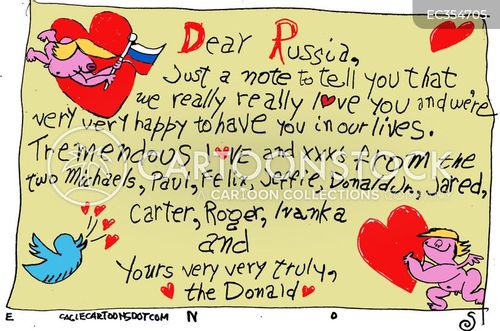 EC354705
Dear Russia,
Just a note to tell you that
we really really love you and we're
very very happy to have you in our lives.
Tremendous love and xxx's from the
two Michaels, Paul, Felix, Jeffie, Donald Jr., Jared,
Carter, Roger, Ivanka
and
Yours very very truly,
the Donald
CARTOONSTOCK
CARTOON COLLECTIONS.COM
E CAGLECARTOONSDOTCOM N O S